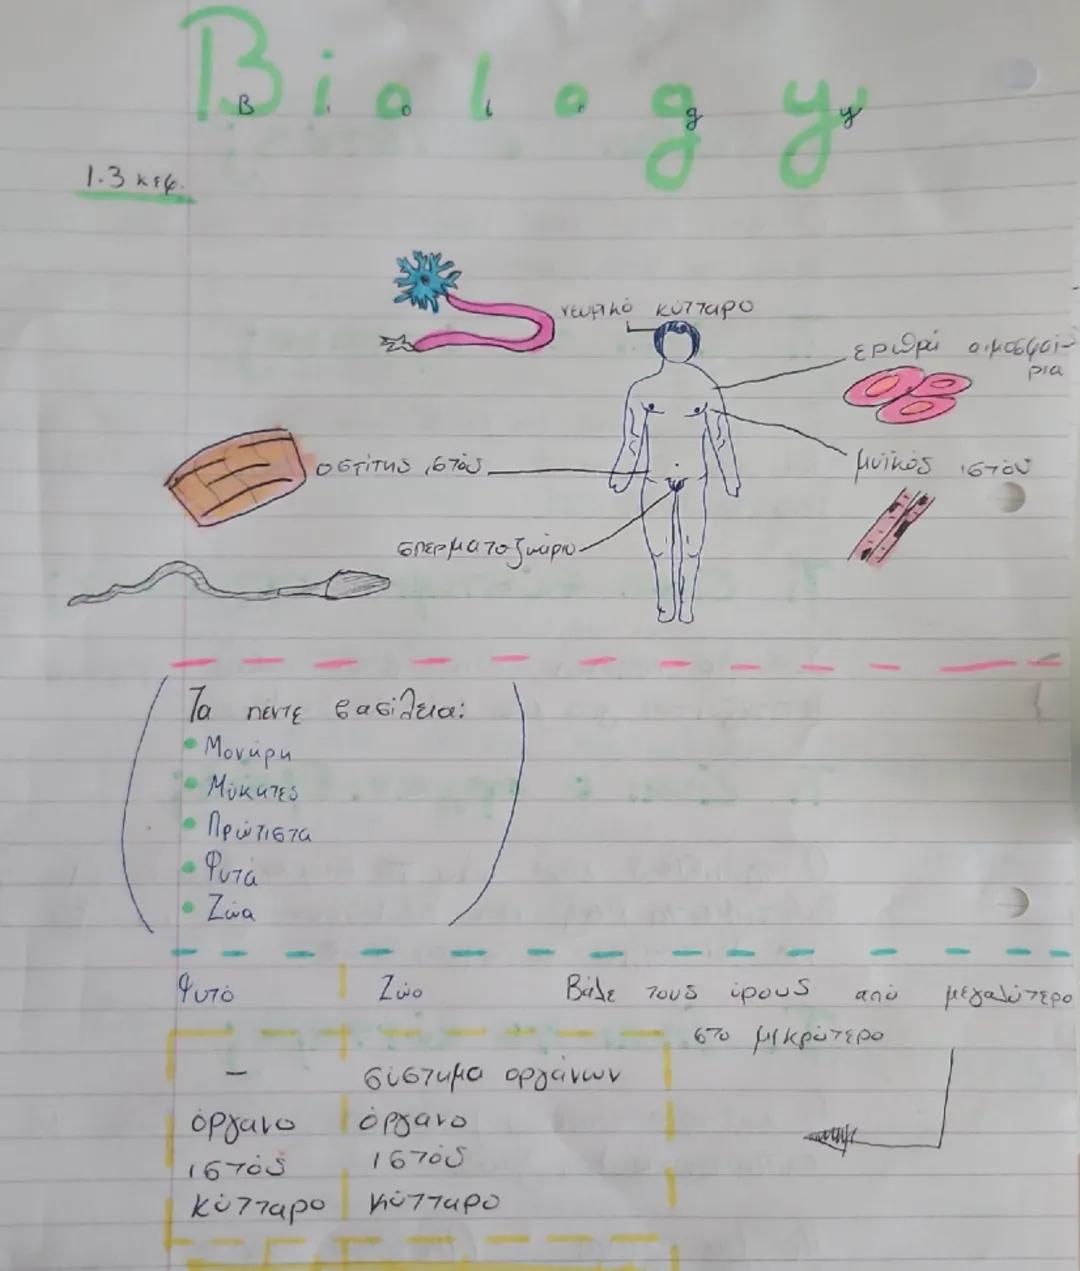 Biology
B i o l o g y
1.3 κεφ.
νευρικό κύτταρο
ερυθρά αιμοσφαί-
ρια
οστίτης ιστός
μυϊκός ιστός
σπερματοζωάριο
Τα πέντε βασίλεια:
• Μονήρη
• Μύκητες
• Πρώτιστα
• Φυτά
• Ζώα
Φυτό Ζώο Βάλε τους όρους από μεγαλύτερο
στο μικρότερο
– σύστημα οργάνων
όργανο όργανο
ιστός ιστός
κύτταρο κύτταρο